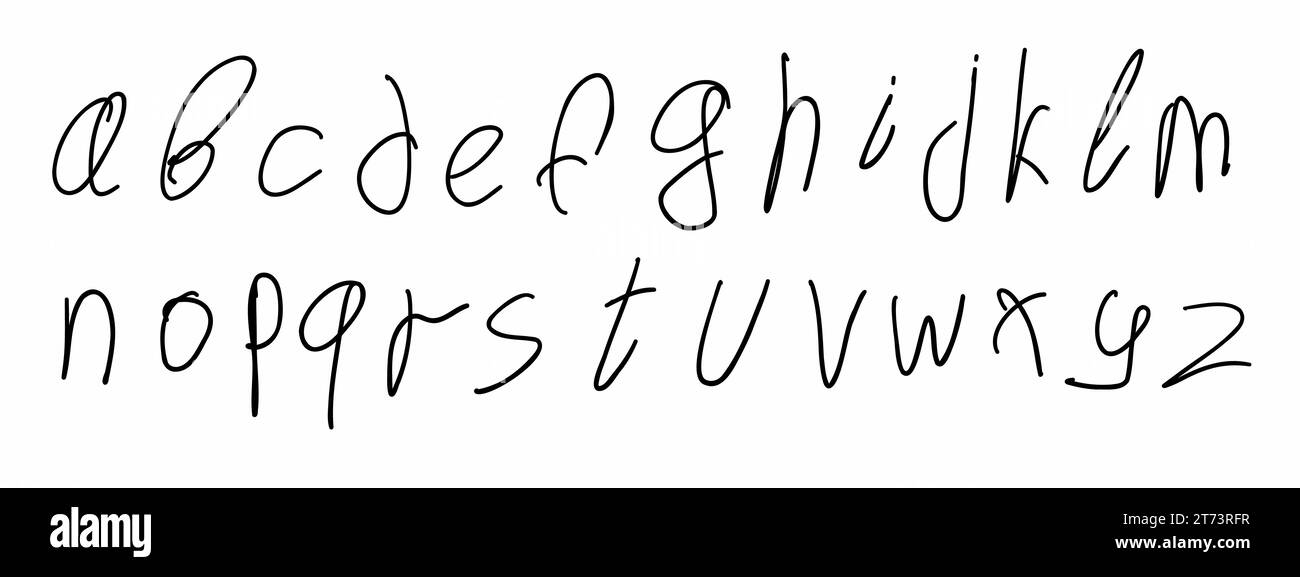 a b c d e f g h i j k l m
n o p q r s t u v w x y z
alamy
Image ID: 2T73RFR
www.alamy.com